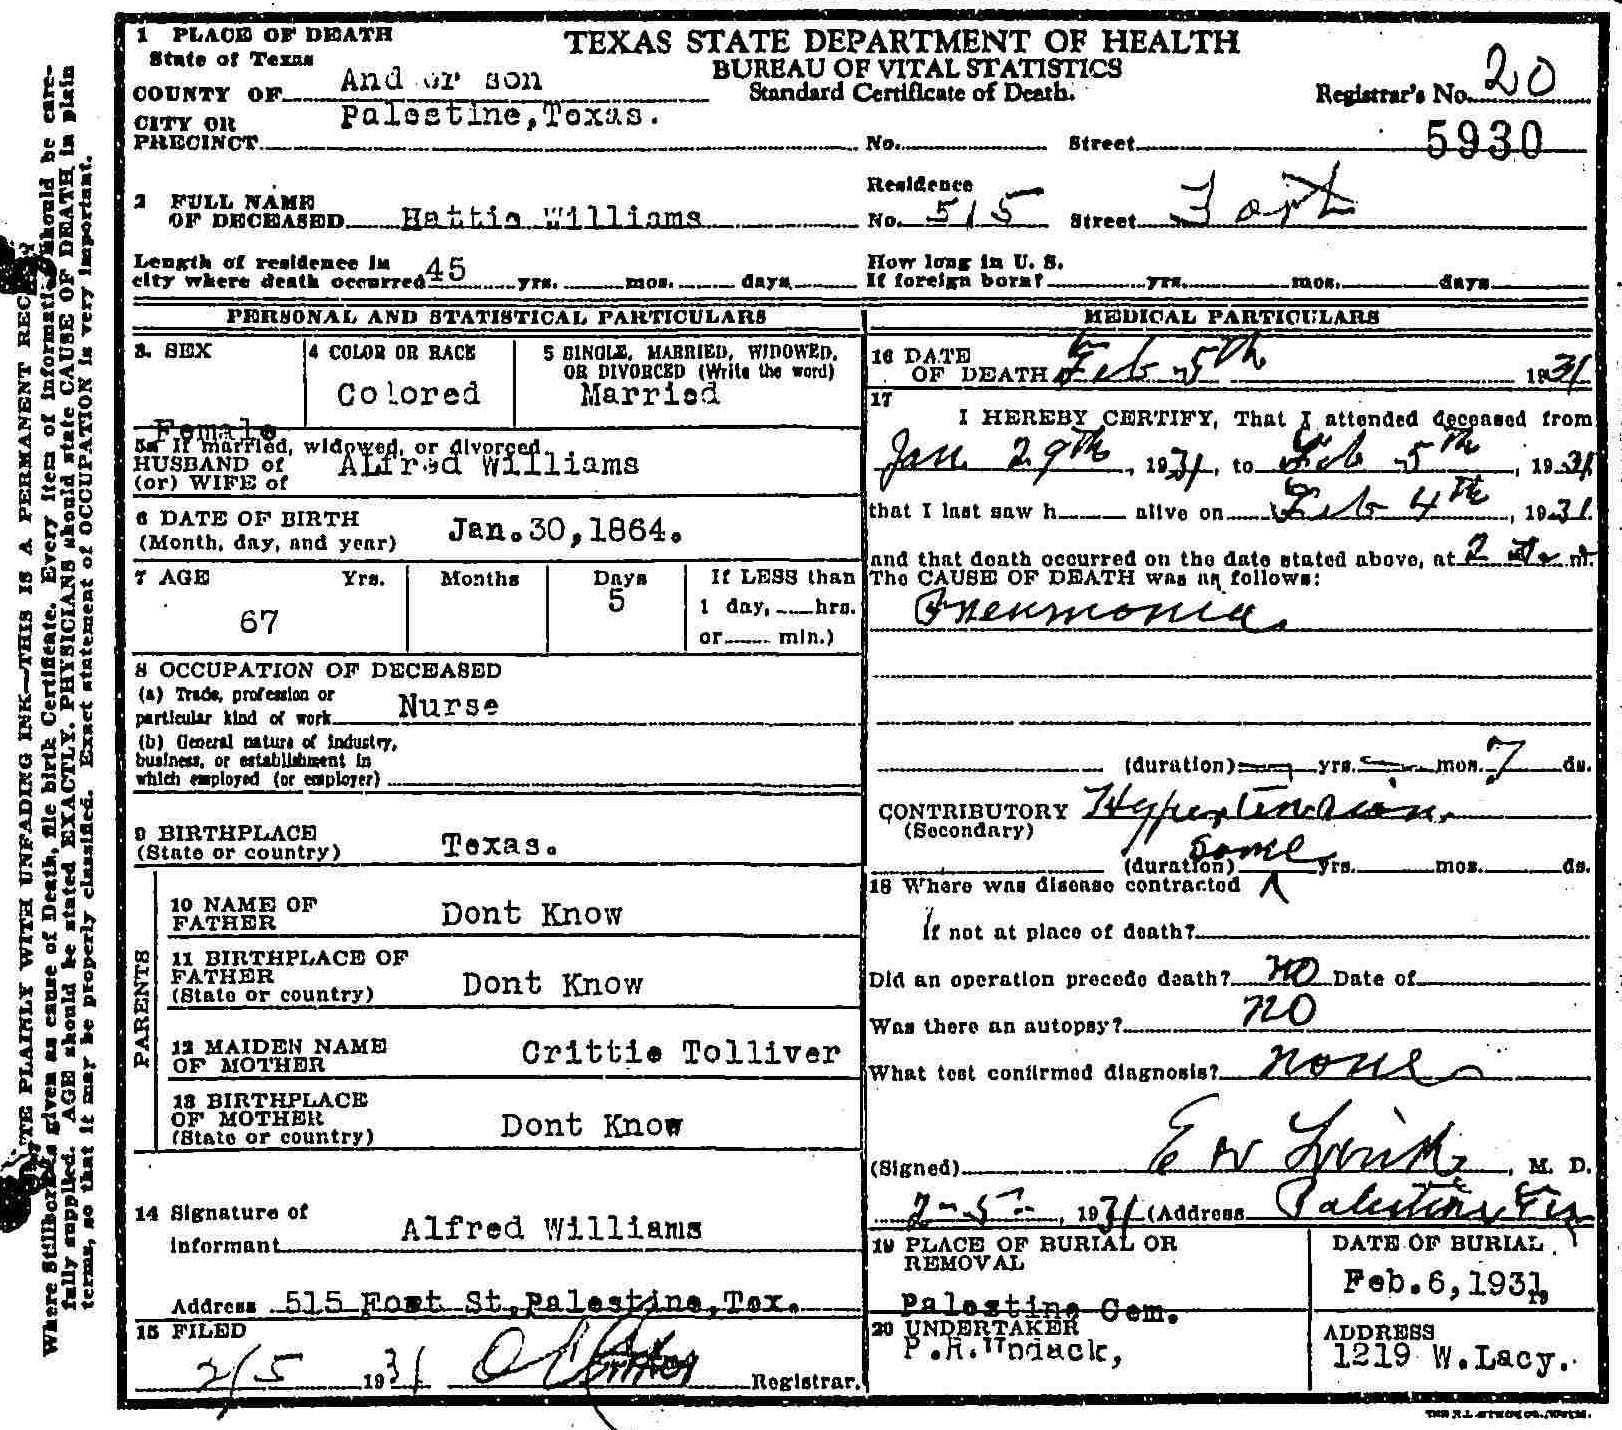 1 PLACE OF DEATH
State of Texas
TEXAS STATE DEPARTMENT OF HEALTH
BUREAU OF VITAL STATISTICS
Standard Certificate of Death.
COUNTY OF And er son
Registrar's No. 20
CITY OR PRECINCT Palestine, Texas.
No. Street
5930
2 FULL NAME OF DECEASED Hattie Williams
Residence
No. 515 Street Fort
Length of residence in
city where death occurred 45 yrs. mos. days
How long in U. S.
If foreign born? yrs. mos. days
PERSONAL AND STATISTICAL PARTICULARS
3. SEX
Female
4 COLOR OR RACE
Colored
5 SINGLE, MARRIED, WIDOWED,
OR DIVORCED (Write the word)
Married
5a If married, widowed, or divorced
HUSBAND of
(or) WIFE of
Alfred Williams
6 DATE OF BIRTH
(Month, day, and year)
Jan.30,1864.
7 AGE Yrs. Months Days If LESS than
67 5 1 day, hrs.
or min.)
8 OCCUPATION OF DECEASED
(a) Trade, profession or
particular kind of work Nurse
(b) General nature of industry,
business, or establishment in
which employed (or employer)
9 BIRTHPLACE
(State or country) Texas.
PARENTS
10 NAME OF
FATHER Dont Know
11 BIRTHPLACE OF
FATHER
(State or country) Dont Know
12 MAIDEN NAME
OF MOTHER Crittie Tolliver
13 BIRTHPLACE
OF MOTHER
(State or country) Dont Know
14 Signature of
informant Alfred Williams
Address 515 Fort St, Palestine, Tex.
15 FILED
2/5 1931 Registrar.
MEDICAL PARTICULARS
16 DATE
OF DEATH Feb 5th 1931
17
I HEREBY CERTIFY, That I attended deceased from
Jan 29th, 1931, to Feb 5th, 1931
that I last saw h alive on Feb 4th, 1931
and that death occurred on the date stated above, at 2 m.
The CAUSE OF DEATH was as follows:
Pneumonia
(duration) yrs. mos. 7 ds.
CONTRIBUTORY Hypertension.
(Secondary)
(duration) some yrs. mos. ds.
18 Where was disease contracted
If not at place of death?
Did an operation precede death? no Date of
Was there an autopsy? no
What test confirmed diagnosis? none
(Signed) E W , M. D.
2-5-, 1931 (Address Palestine Tex
19 PLACE OF BURIAL OR
REMOVAL
Palestine Cem.
DATE OF BURIAL
Feb.6,1931, 19
20 UNDERTAKER
ADDRESS
1219 W.Lacy.
WRITE PLAINLY WITH UNFADING INK—THIS IS A PERMANENT RECORD
Where Stillborn is given as cause of Death, file birth Certificate. Every item of information should be care-
fully supplied. AGE should be stated EXACTLY. PHYSICIANS should state CAUSE OF DEATH in plain
terms, so that it may be properly classified. Exact statement of OCCUPATION is very important.